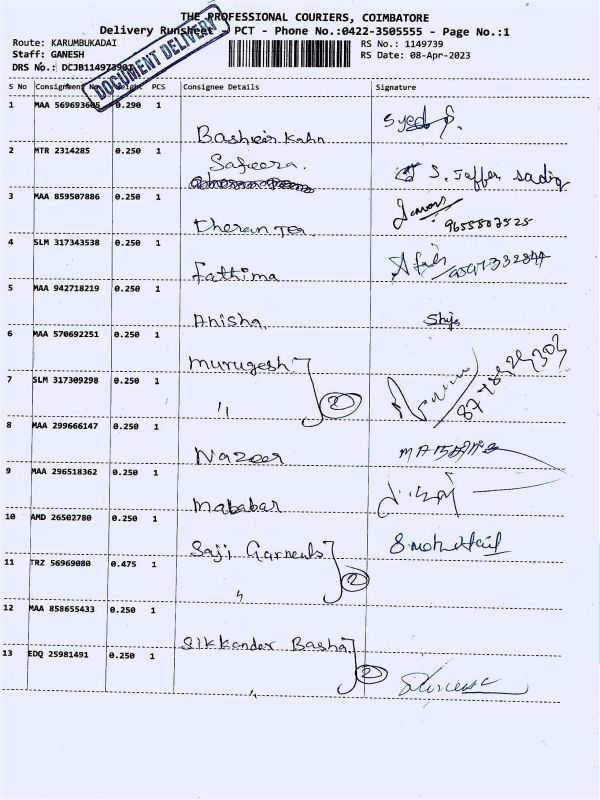 THE PROFESSIONAL COURIERS, COIMBATORE
Delivery Runsheet - PCT - Phone No.:0422-3505555 - Page No.:1
Route: KARUMBUKADAI RS No.: 1149739
Staff: GANESH RS Date: 08-Apr-2023
DRS No.:
DOCUMENT DELIVERY
S No Consignment No Weight PCS Consignee Details Signature
1 MAA 0.290 1
Basheir Kahn
2 MTR 2314285 0.250 1
Safeera. S. Jaffer sadiq
3 MAA 859507886 0.250 1
Theran Tea
4 SLM 317343538 0.250 1
Fathima
5 MAA 942718219 0.250 1
Anisha
6 MAA 570692251 0.250 1
Murugesh
7 SLM 317309298 0.250 1
" 2
8 MAA 299666147 0.250 1
Nazeer
9 MAA 296518362 0.250 1
Mababar
10 AMD 26502780 0.250 1
Saji Garments
11 TRZ 56969080 0.475 1
" 2
12 MAA 858655433 0.250 1
Sikkandar Basha
13 EDQ 25981491 0.250 1
" 2